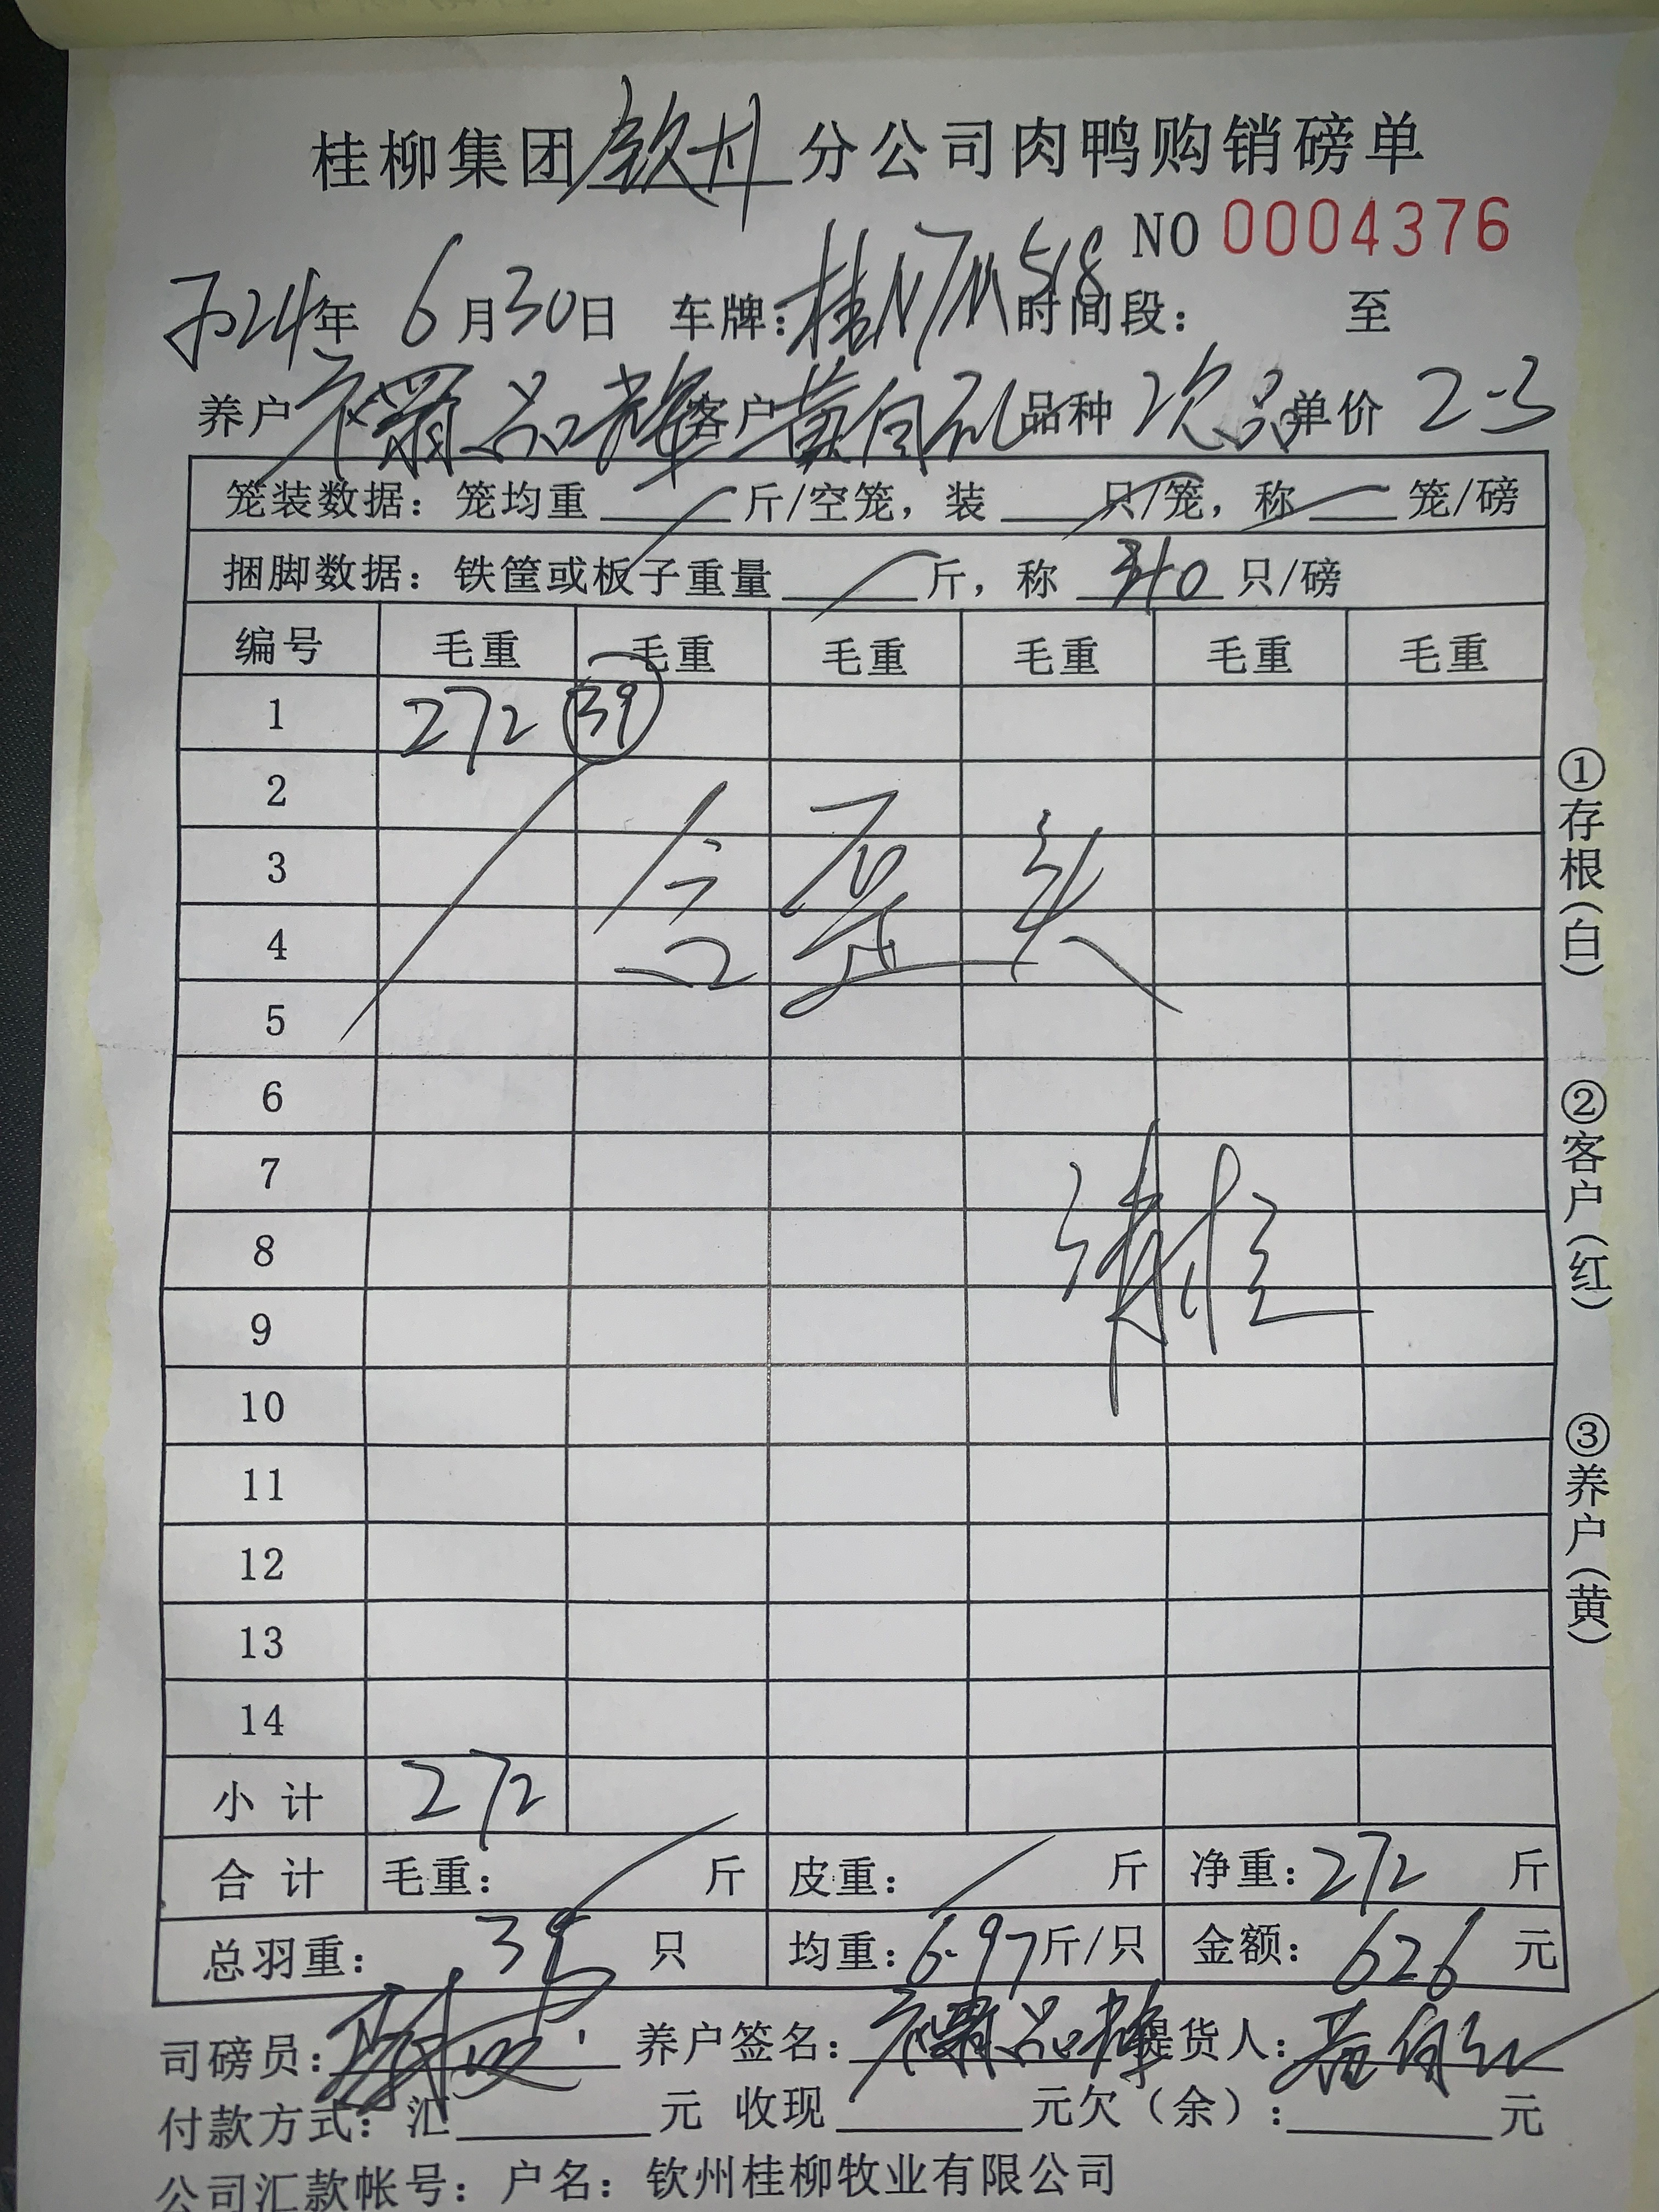 桂柳集团钦州分公司肉鸭购销磅单
NO 0004376
2024年 6月30日 车牌:桂N7M518 时间段: 至
养户 品 客户 黄 品种 次品 单价 2-3
笼装数据: 笼均重 斤/空笼, 装 只/笼, 称 笼/磅
捆脚数据: 铁筐或板子重量 斤, 称 只/磅
编号 毛重 毛重 毛重 毛重 毛重 毛重
1 272 39
2
3 含歪头
4
5
6
7
8
9
10
11
12
13
14
小计 272
合计 毛重: 斤 皮重: 斤 净重:272 斤
总羽重: 39 只 均重:6.97斤/只 金额: 626 元
司磅员: 养户签名: 提货人: 黄
付款方式: 汇 元 收现 元欠(余): 元
公司汇款帐号: 户名: 钦州桂柳牧业有限公司
①存根(白)
②客户(红)
③养户(黄)